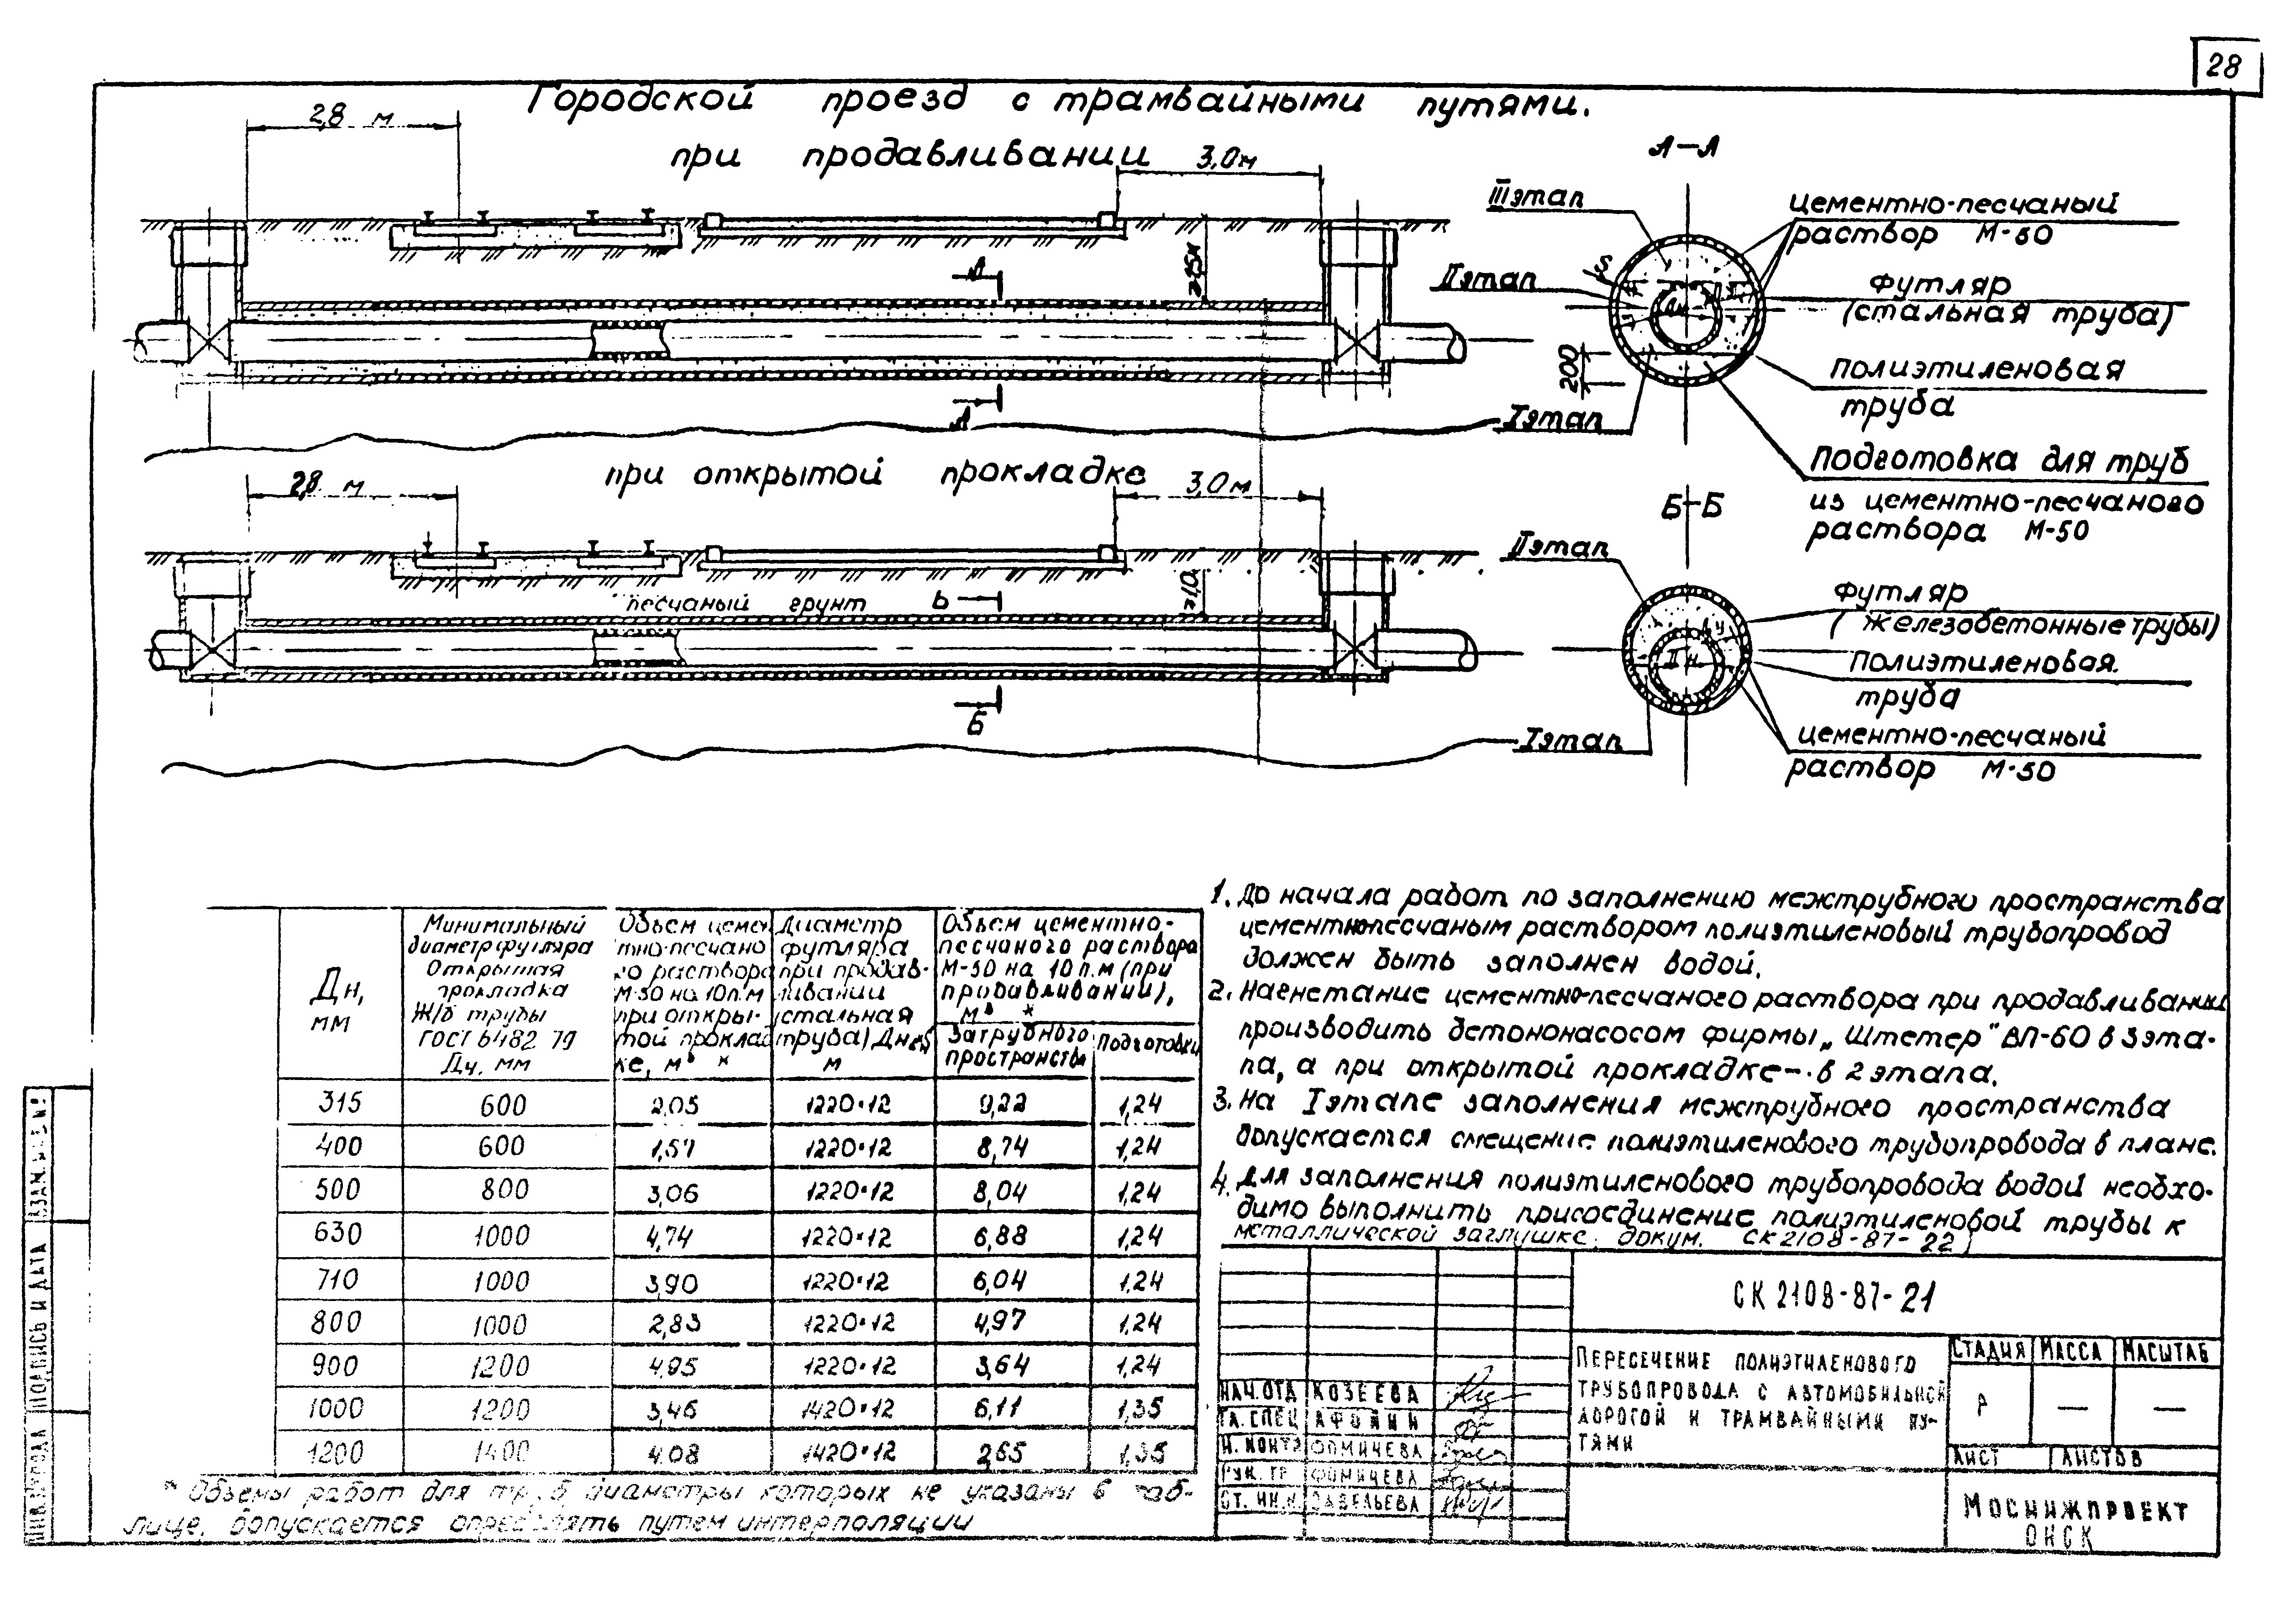 28
Городской проезд с трамвайными путями.
при продавливании
2,8 м
3,0м
А
А
А-А
IIIэтап
IIэтап
Iэтап
S
200
цементно-песчаный
раствор М-50
Футляр
(стальная труба)
полиэтиленовая
труба
Подготовка для труб
из цементно-песчаного
раствора М-50
при открытой прокладке
2,8 м
3,0м
≥1,0
песчаный грунт
Б
Б
Б-Б
IIэтап
Iэтап
Дн
Футляр
(железобетонные трубы)
полиэтиленовая
труба
цементно-песчаный
раствор М-50
Дн, мм | Минимальный диаметр футляра Открытая прокладка Ж/б трубы ГОСТ 6482 79 Ду, мм | Объем цементно-песчаного раствора М-50 на 10п.м при открытой прокладке, м³ * | Диаметр футляра при продавливании (стальная труба) Дн×S м | Объем цементно-песчаного раствора М-50 на 10п.м (при продавливании), м³ * Затрубного пространства | Подготовки
315 600 2,05 1220×12 9,22 1,24
400 600 1,57 1220×12 8,74 1,24
500 800 3,06 1220×12 8,04 1,24
630 1000 4,74 1220×12 6,88 1,24
710 1000 3,90 1220×12 6,04 1,24
800 1000 2,83 1220×12 4,97 1,24
900 1200 4,95 1220×12 3,64 1,24
1000 1200 3,46 1420×12 6,11 1,35
1200 1400 4,08 1420×12 2,65 1,35
* Объемы работ для труб диаметры которых не указаны в таб-
лице, допускается определять путем интерполяции
1. До начала работ по заполнению межтрубного пространства
цементно-песчаным раствором полиэтиленовый трубопровод
должен быть заполнен водой.
2. Нагнетание цементно-песчаного раствора при продавливании
производить бетононасосом фирмы „Штетер" ВП-60 в 3 эта-
па, а при открытой прокладке - в 2 этапа.
3. На I этапе заполнения межтрубного пространства
допускается смещение полиэтиленового трубопровода в плане.
4. Для заполнения полиэтиленового трубопровода водой необхо-
димо выполнить присоединение полиэтиленовой трубы к
металлической заглушке. докум. СК 2108-87-22)
СК 2108-87-21
Пересечение полиэтиленового
трубопровода с автомобильной
дорогой и трамвайными пу-
тями
Стадия Масса Масштаб
Р — —
Лист Листов
Мосинжпроект
ОНСК
Нач.отд Козеева
Гл. спец Афонин
Н. контр Фомичева
Рук. гр. Фомичева
Ст. инж. Савельева
Инв.№ подл Подпись и дата Взам.инв.№